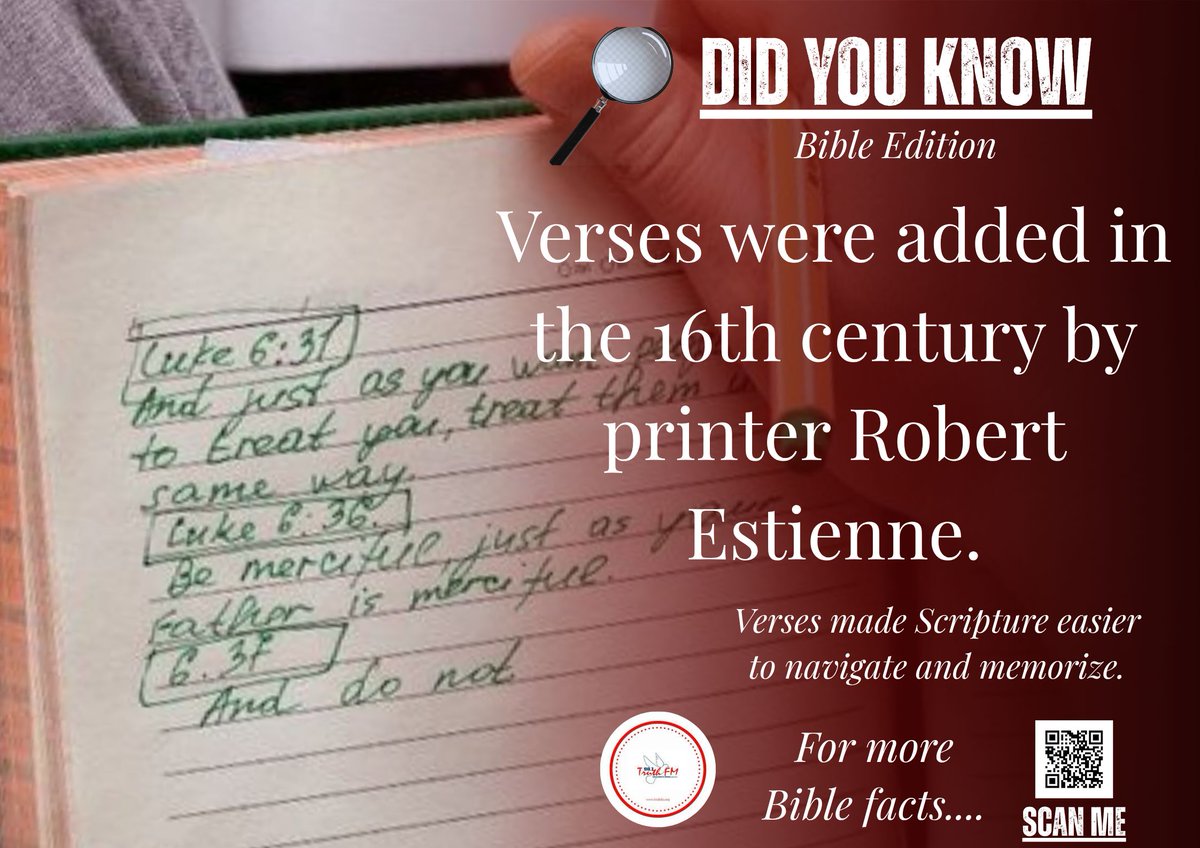 DID YOU KNOW
Bible Edition
Verses were added in
the 16th century by
printer Robert
Estienne.
Verses made Scripture easier
to navigate and memorize.
For more
Bible facts....
SCAN ME
Truth FM
Luke 6:31
And just as you want
to treat you, treat them
same way.
Luke 6:36.
Be merciful, just as your
Father is merciful.
6.37
And do not